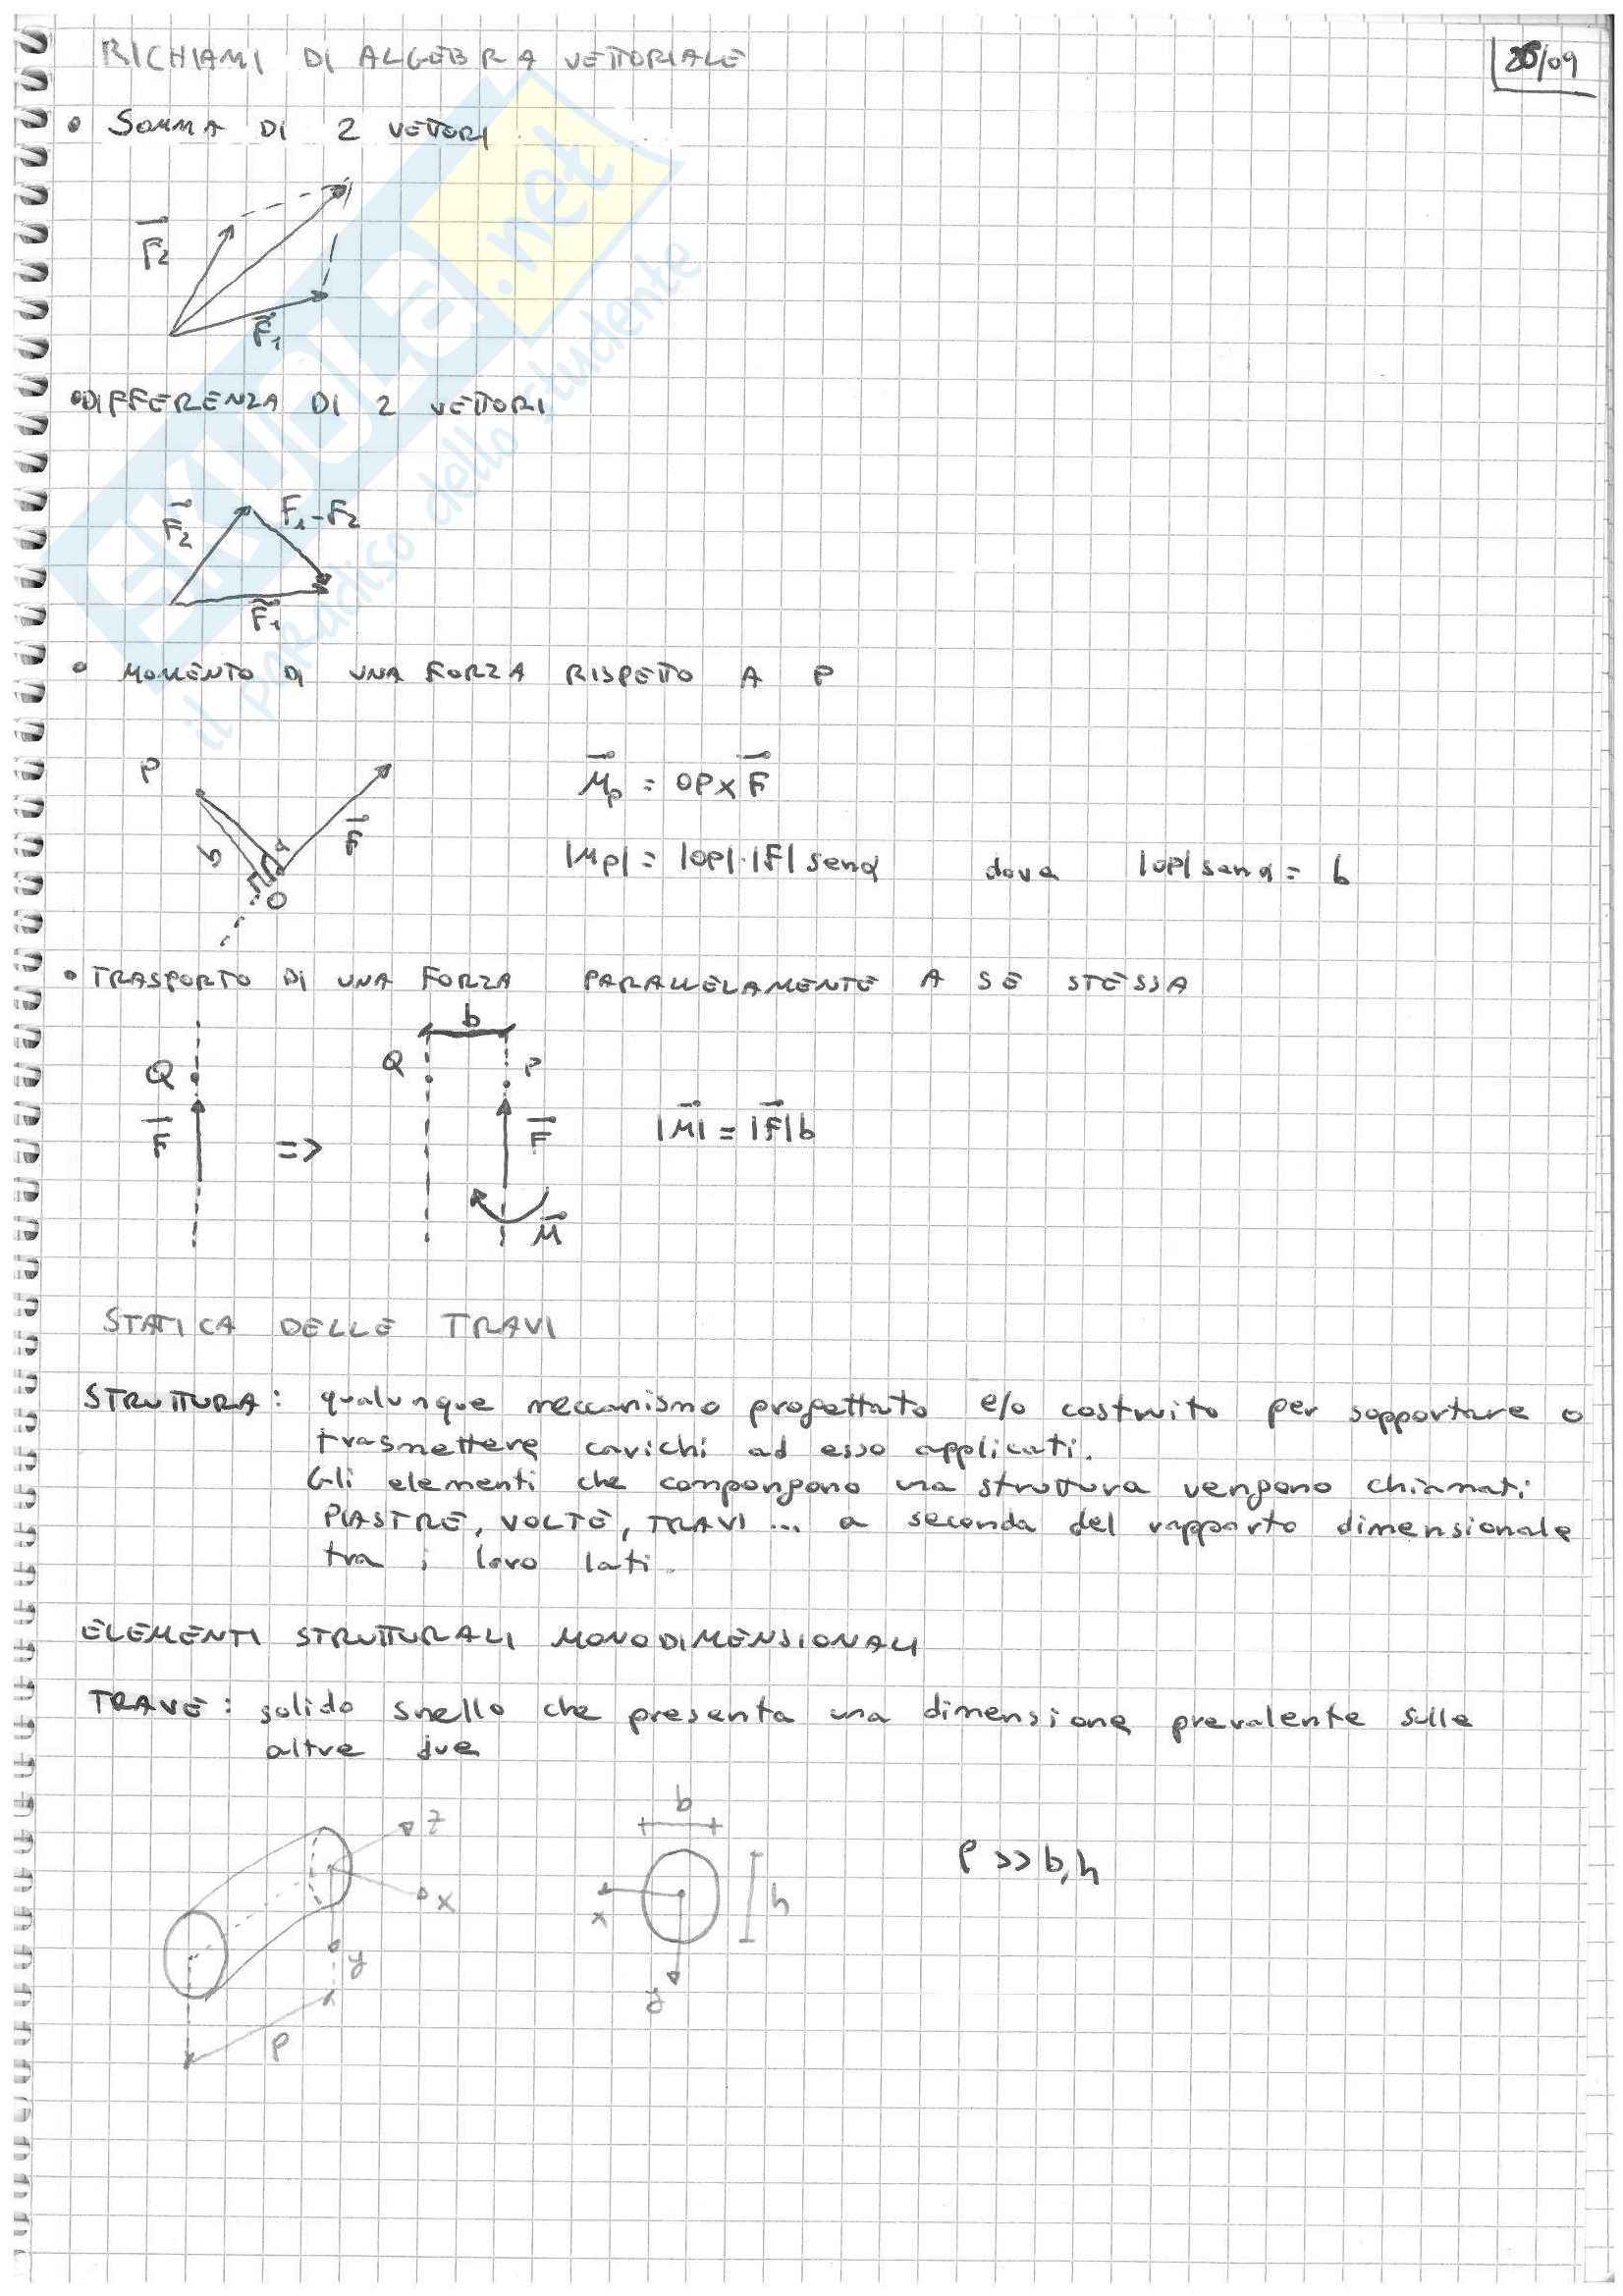 RICHIAMI DI ALGEBRA VETTORIALE
26/09
• SOMMA DI 2 VETTORI
F₂
F₁
• DIFFERENZA DI 2 VETTORI
F₂ F₁-F₂
F₁
• MOMENTO DI UNA FORZA RISPETTO A P
P
b α F
O
Mp = OP x F
|Mp| = |OP|·|F| senα dove |OP| senα = b
• TRASPORTO DI UNA FORZA PARALLELAMENTE A SE STESSA
b
Q Q P
F => F |M| = |F|b
M
STATICA DELLE TRAVI
STRUTTURA: qualunque meccanismo progettato e/o costruito per sopportare o
trasmettere carichi ad esso applicati.
Gli elementi che compongono una struttura vengono chiamati
PIASTRE, VOLTE, TRAVI ... a seconda del rapporto dimensionale
tra i loro lati.
ELEMENTI STRUTTURALI MONODIMENSIONALI
TRAVE: solido snello che presenta una dimensione prevalente sulle
altre due
z b
x x h
y y
l
l >> b,h
SKUOLA.net
il paradiso dello studente